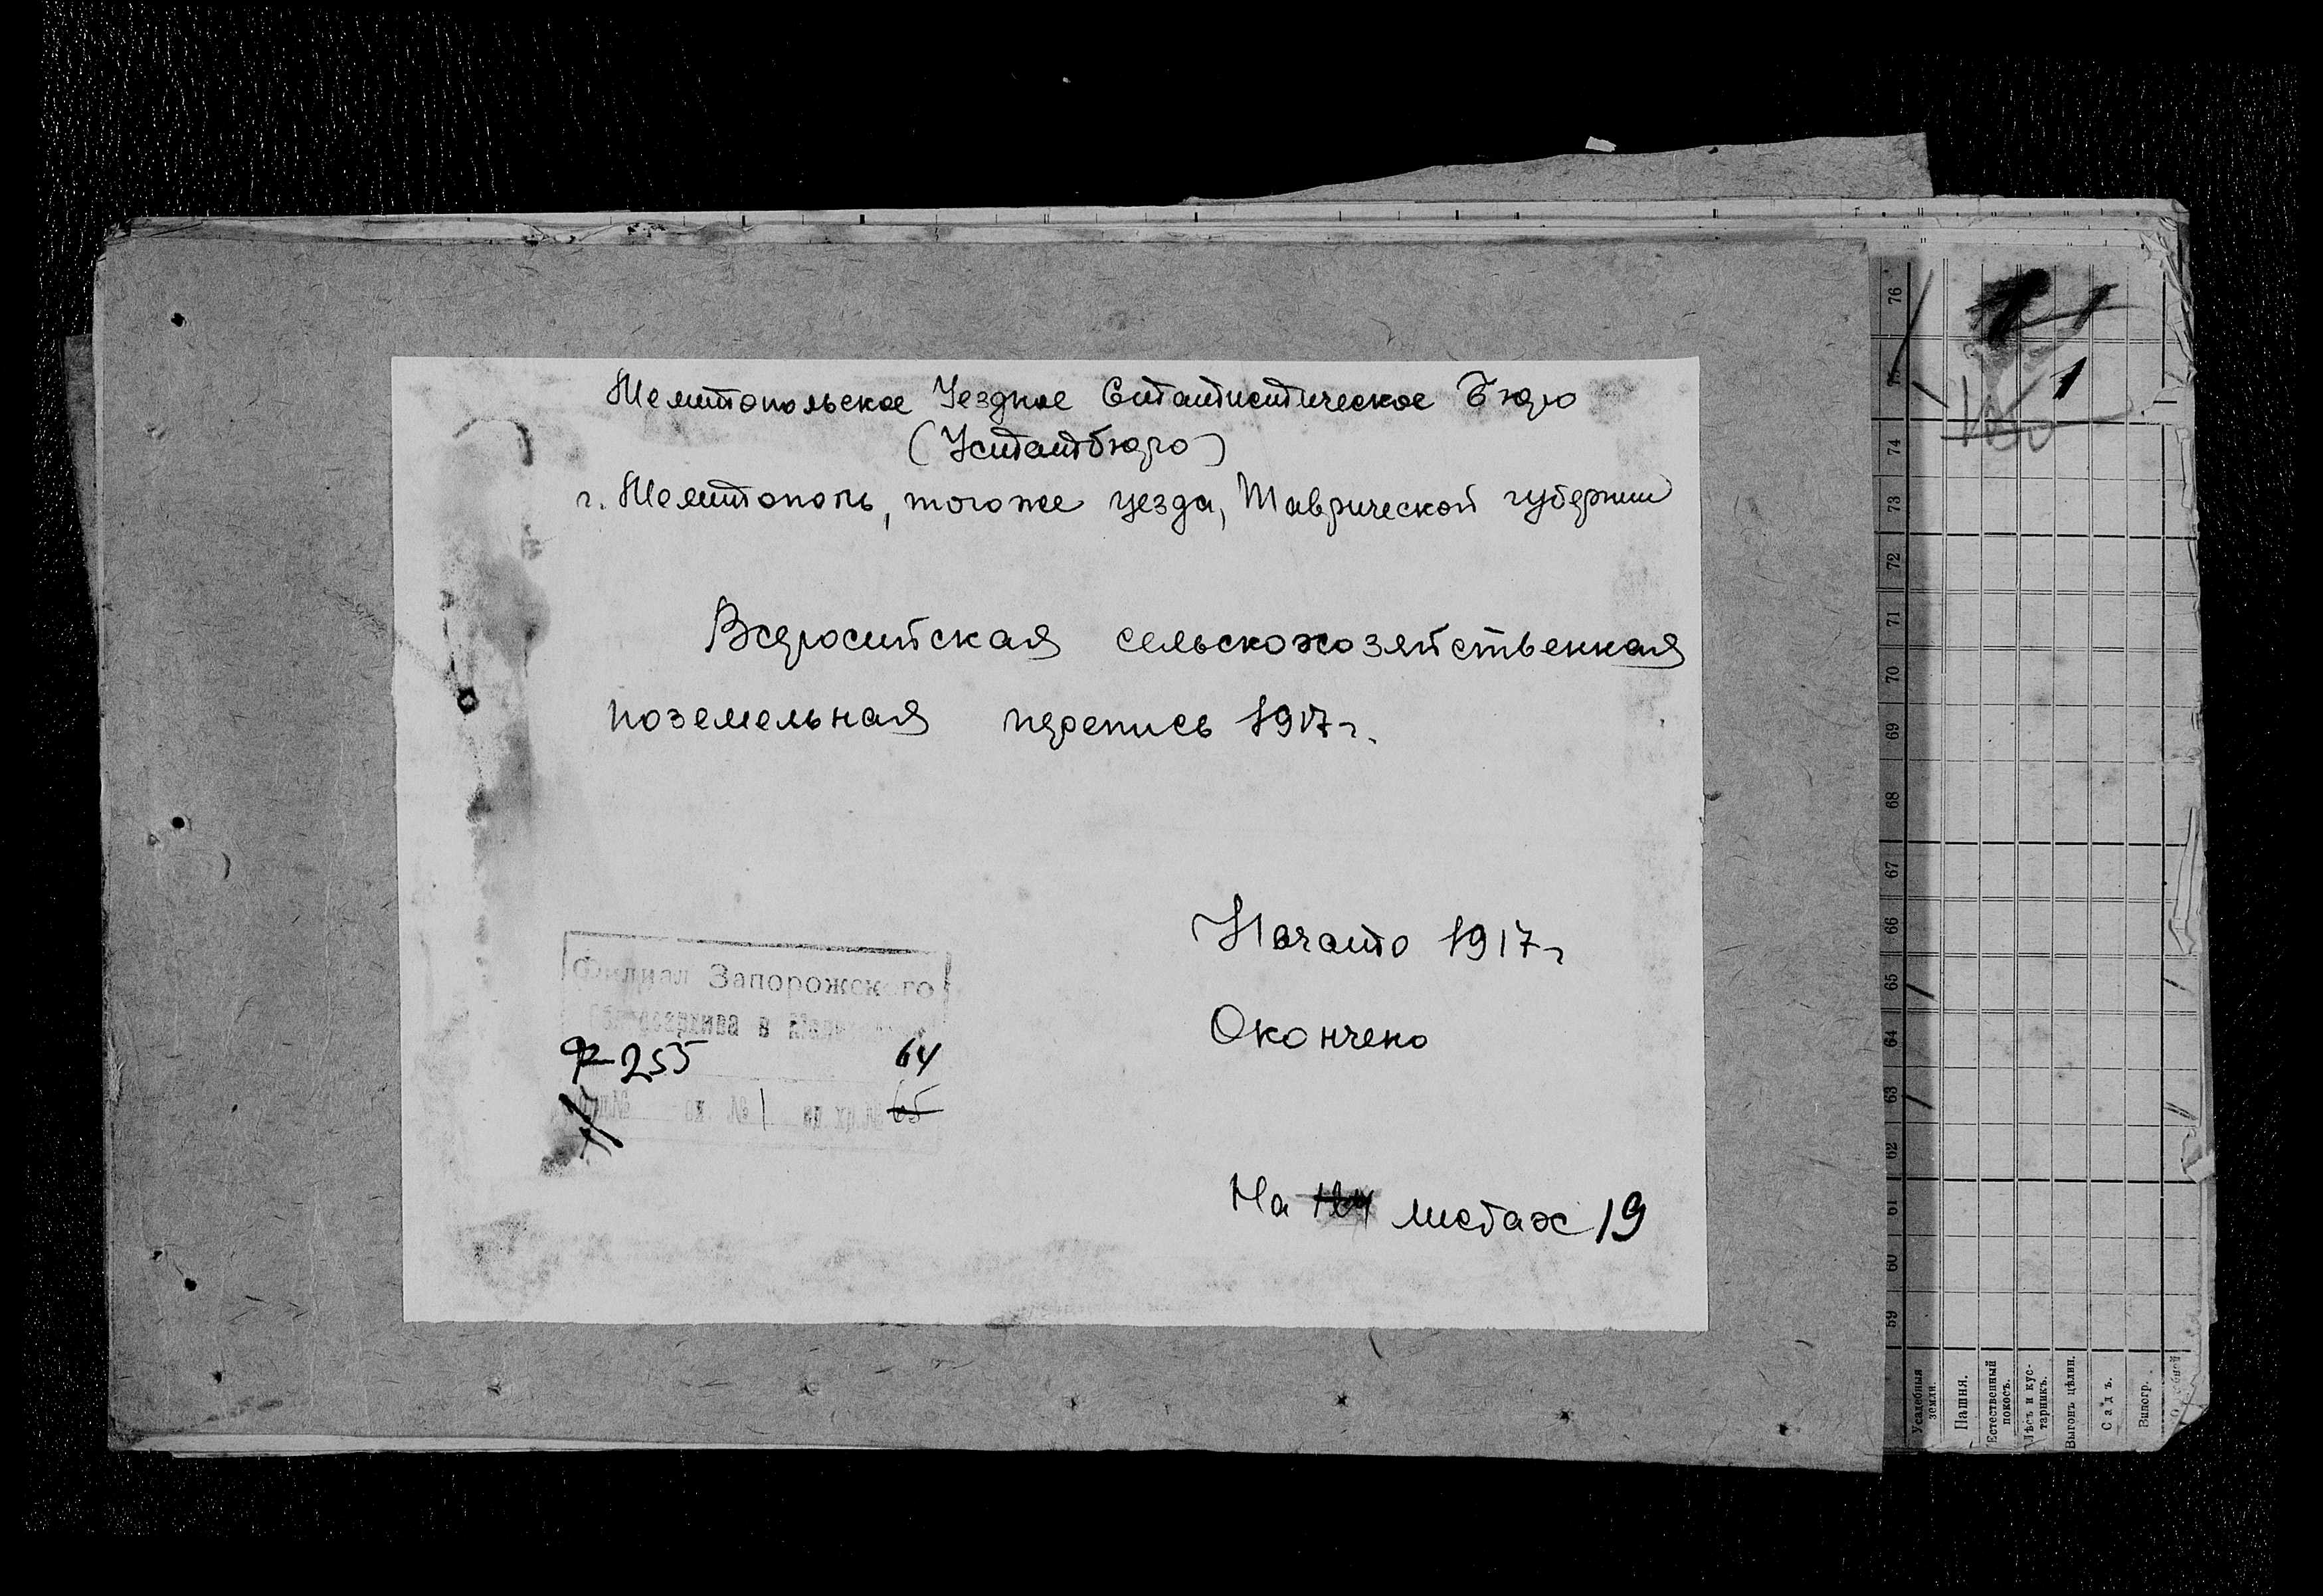 Мелитопольское Уездное Статистическое Бюро
(Устатбюро)
г. Мелитополь, того же уезда, Таврической губернии
Всеросийская сельскохозяйственная
поземельная перепись 1917 г.
Начато 1917 г
Окончено
На листах 19
Филиал Запорожского
облгосархива в
Р-255 64
№ оп. № 1 ед. хр. № 65
1 1
1
76
74
73
72
71
70
69
68
67
66
65
64
63
62
61
60
59
Усадебныя земли.
Пашня.
Естественный покосъ.
Лѣсъ и кустарникъ.
Выгонъ цѣлин.
Садъ.
Виногр.